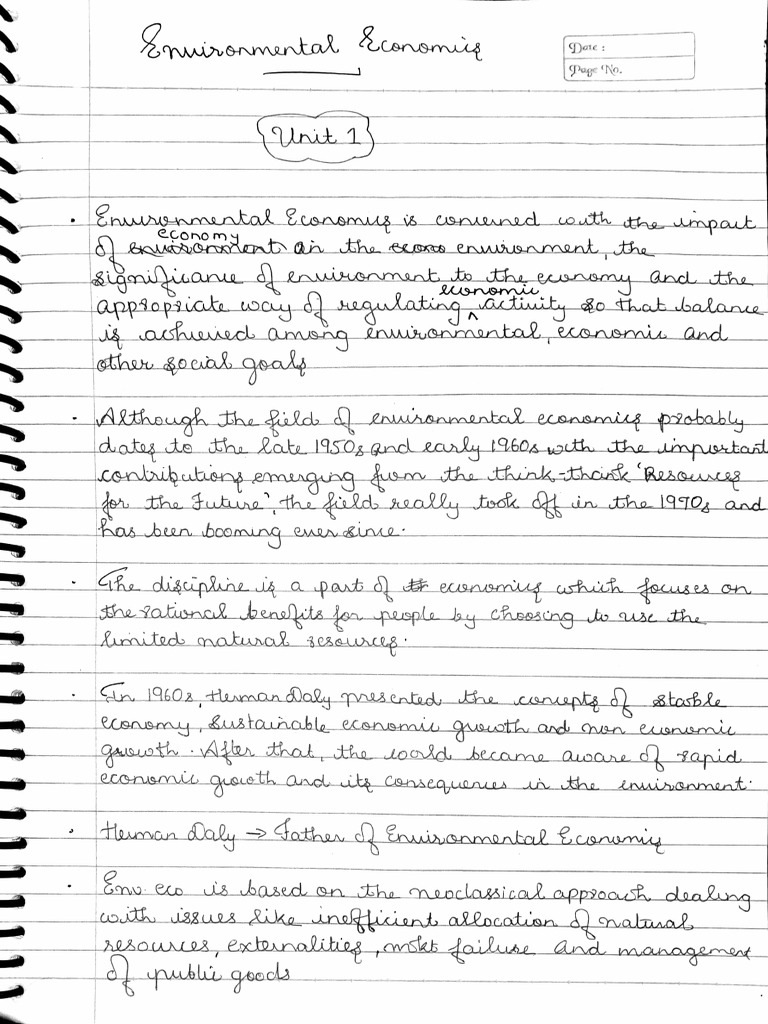 Environmental Economics
Date :
Page No.
Unit 1
• Environmental Economics is concerned with the impact
of economy on the environment, the
significance of environment to the economy and the
appropriate way of regulating economic activity so that balance
is achieved among environmental, economic and
other social goals
• Although the field of environmental economics probably
dates to the late 1950s and early 1960s with the important
contributions emerging from the think-thank 'Resources
for the Future', the field really took off in the 1970s and
has been booming ever since.
• The discipline is a part of economics which focuses on
the rational benefits for people by choosing to use the
limited natural resources.
• In 1960s, Herman Daly presented the concepts of stable
economy, sustainable economic growth and non economic
growth. After that, the world became aware of rapid
economic growth and its consequences in the environment.
• Herman Daly → Father of Environmental Economics
• Env. eco is based on the neoclassical approach dealing
with issues like inefficient allocation of natural
resources, externalities, mkt failure and management
of public goods